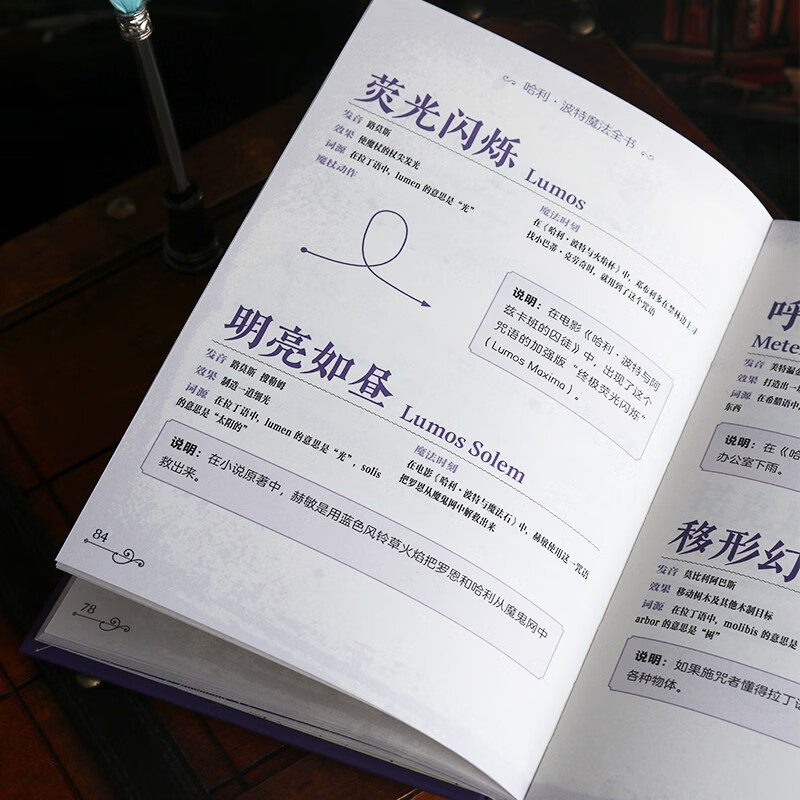 哈利·波特魔法全书
荧光闪烁 Lumos
发音 路莫斯
效果 使魔杖的杖尖发光
词源 在拉丁语中，lumen 的意思是“光”
魔杖动作
魔法时刻
在《哈利·波特与火焰杯》中，邓布利多在禁林边上寻
找小巴蒂·克劳奇时，就用到了这个咒语
说明：在电影《哈利·波特与阿
兹卡班的囚徒》中，出现了这个
咒语的加强版“终极荧光闪烁”
（Lumos Maxima）。
明亮如昼 Lumos Solem
发音 路莫斯 搜勒姆
效果 制造一道细光
词源 在拉丁语中，lumen 的意思是“光”，solis
的意思是“太阳的”
魔法时刻
在电影《哈利·波特与魔法石》中，赫敏使用这一咒语
把罗恩从魔鬼网中解救出来
说明：在小说原著中，赫敏是用蓝色风铃草火焰把罗恩和哈利从魔鬼网中
救出来。
84
78
呼
Mete
发音 美特
效果 打造出一
词源 在希腊语中
东西
说明：在《哈
办公室下雨。
移形幻
发音 莫比利阿巴斯
效果 移动树木及其他木制目标
词源 在拉丁语中，molibis 的意思是
arbor 的意思是“树”
说明：如果施咒者懂得拉丁语
各种物体。